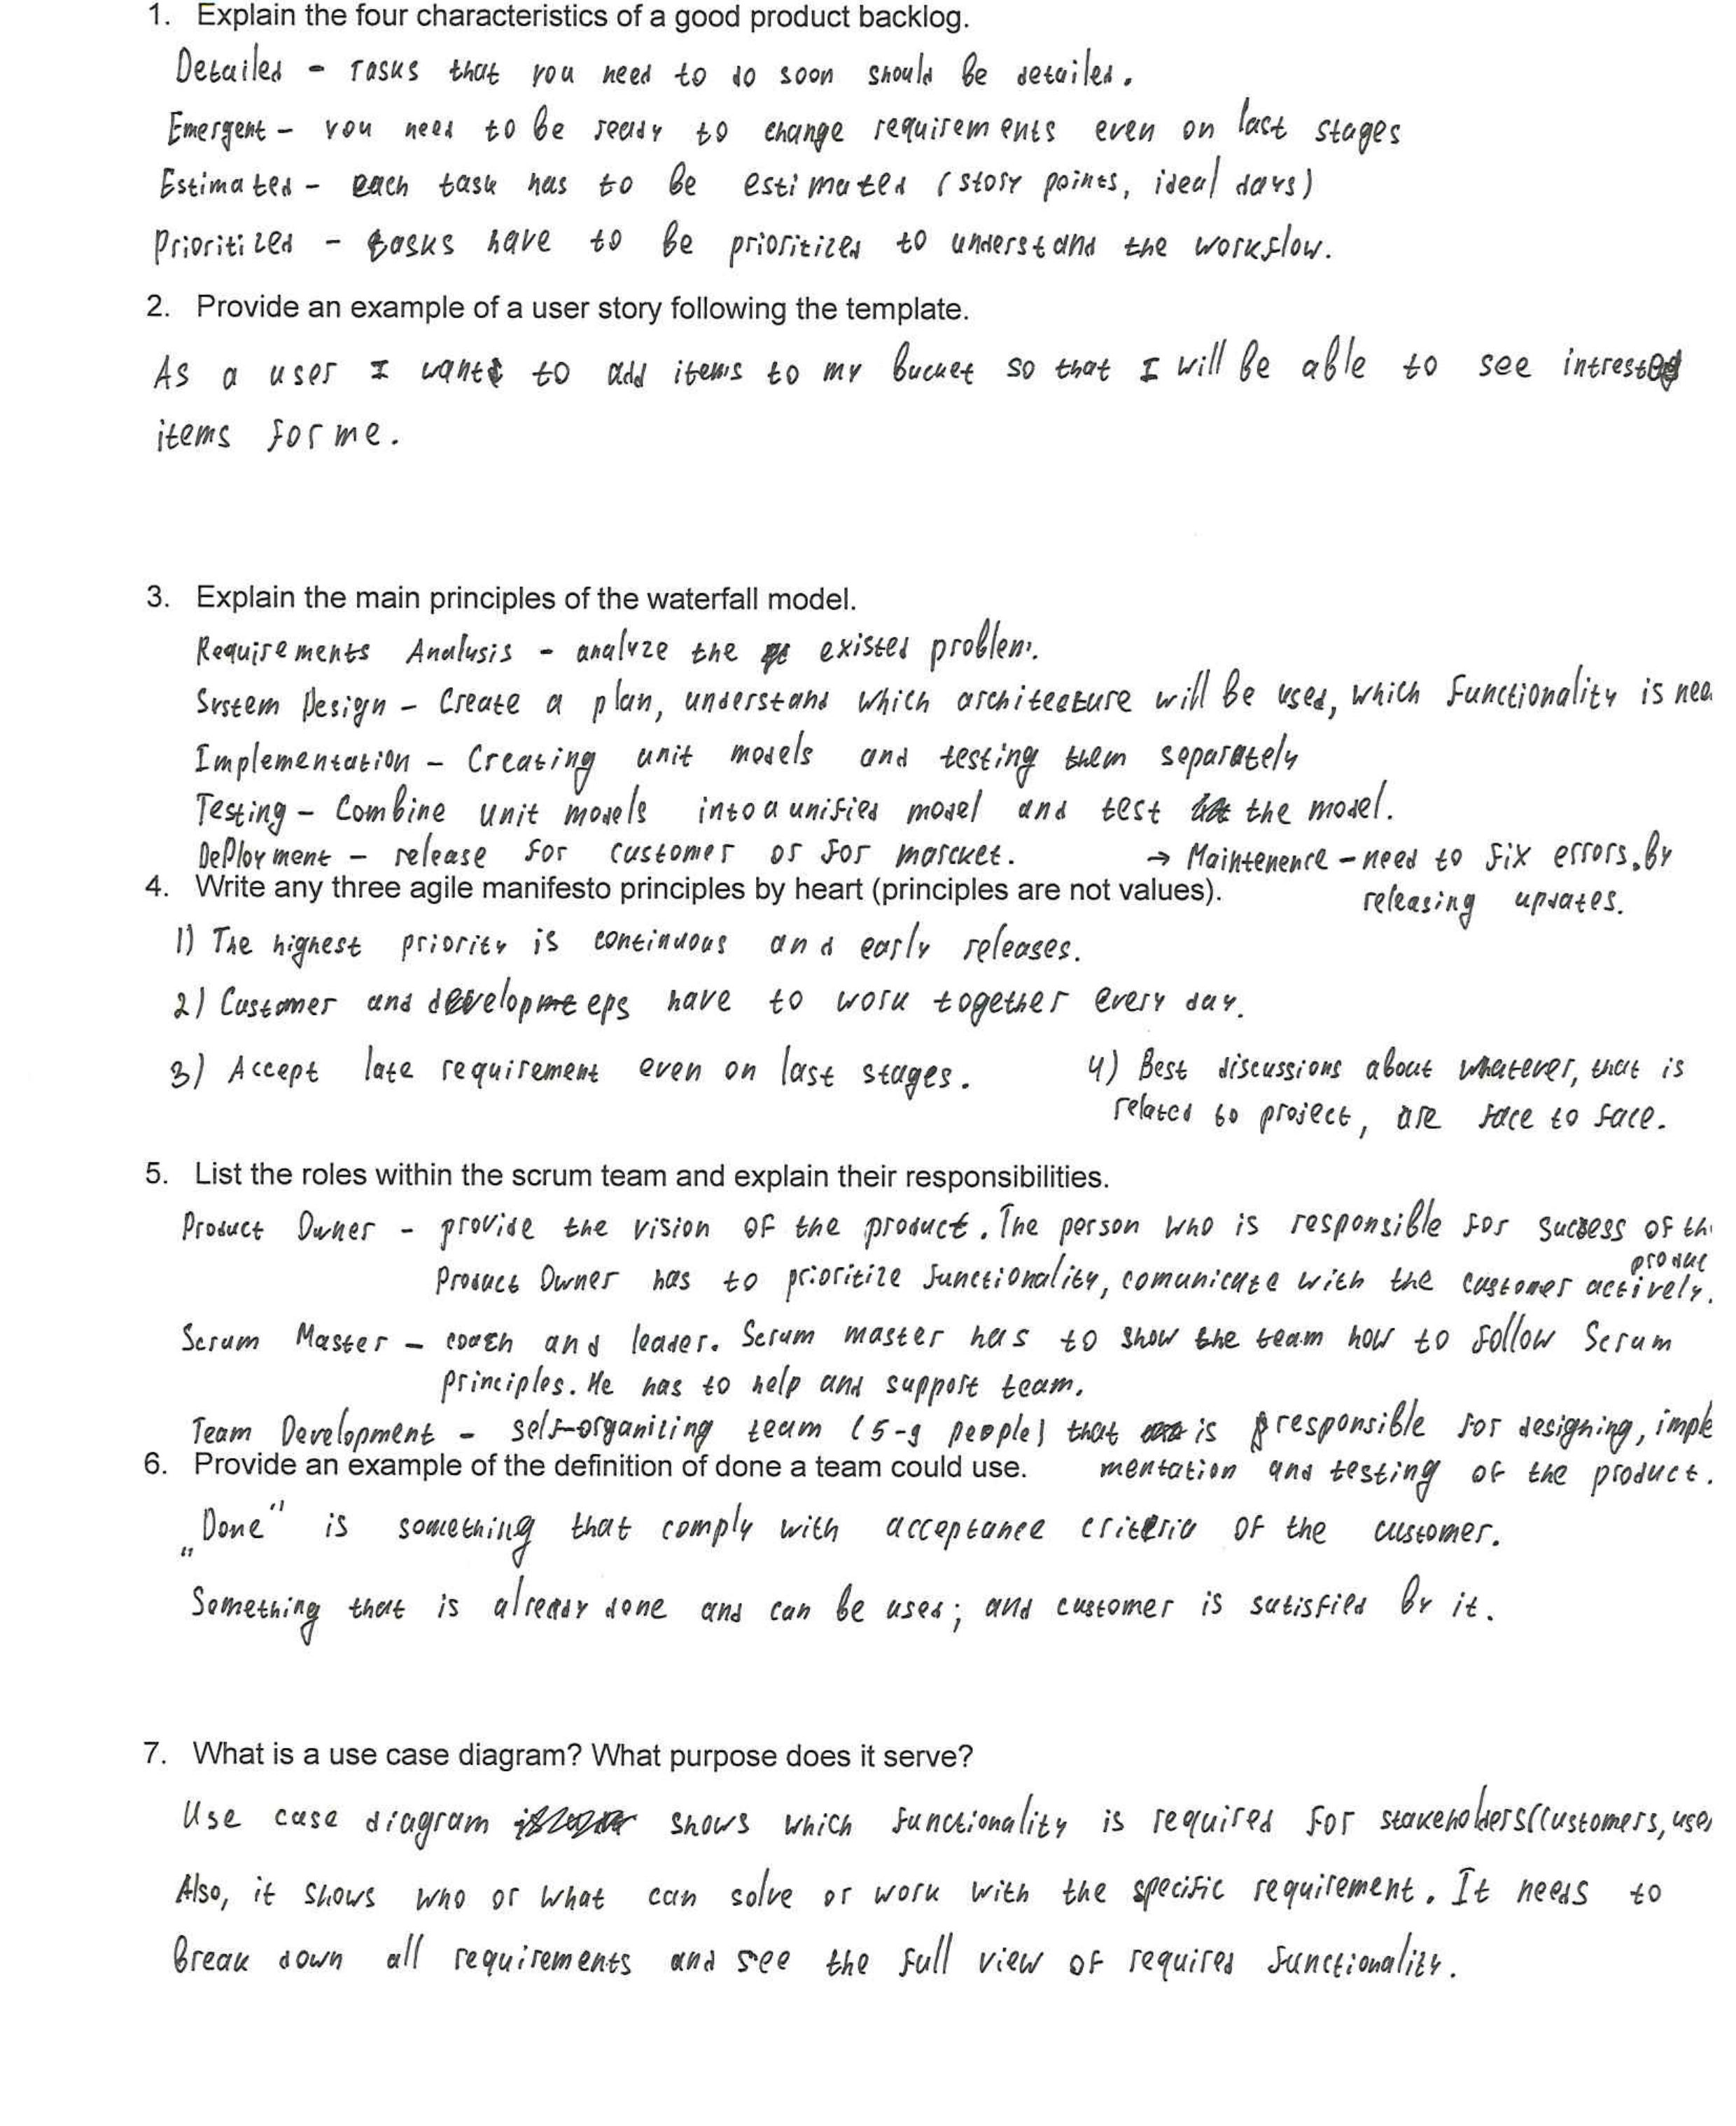 1. Explain the four characteristics of a good product backlog.
Detailed - Tasks that you need to do soon should be detailed.
Emergent - You need to be ready to change requirements even on last stages
Estimated - each task has to be estimated (story points, ideal days)
Prioritized - tasks have to be prioritized to understand the workflow.
2. Provide an example of a user story following the template.
As a user I want to add items to my bucket so that I will be able to see intrested
items for me.
3. Explain the main principles of the waterfall model.
Requirements Analysis - analyze the existed problem.
System Design - Create a plan, understand which architecture will be used, which functionality is nee
Implementation - Creating unit models and testing them separately
Testing - Combine unit models into a unified model and test the model.
Deployment - release for customer or for marcket. → Maintenence - need to fix errors, by
releasing updates.
4. Write any three agile manifesto principles by heart (principles are not values).
1) The highest priority is continuous and early releases.
2) Customer and developeps have to work together every day.
3) Accept late requirement even on last stages. 4) Best discussions about whatever, that is
related to project, are face to face.
5. List the roles within the scrum team and explain their responsibilities.
Product Owner - provide the vision of the product. The person who is responsible for success of th
produc
Product Owner has to prioritize functionality, comunicate with the customer actively.
Scrum Master - coach and leader. Scrum master has to show the team how to follow Scrum
principles. He has to help and support team.
Team Development - self-organizing team (5-9 people) that is responsible for designing, imple
mentation and testing of the product.
6. Provide an example of the definition of done a team could use.
„Done" is something that comply with acceptance criteria of the customer.
Something that is already done and can be used; and customer is satisfied by it.
7. What is a use case diagram? What purpose does it serve?
Use case diagram shows which functionality is required for stakeholders(customers, use
Also, it shows who or what can solve or work with the specific requirement. It needs to
break down all requirements and see the full view of required functionality.